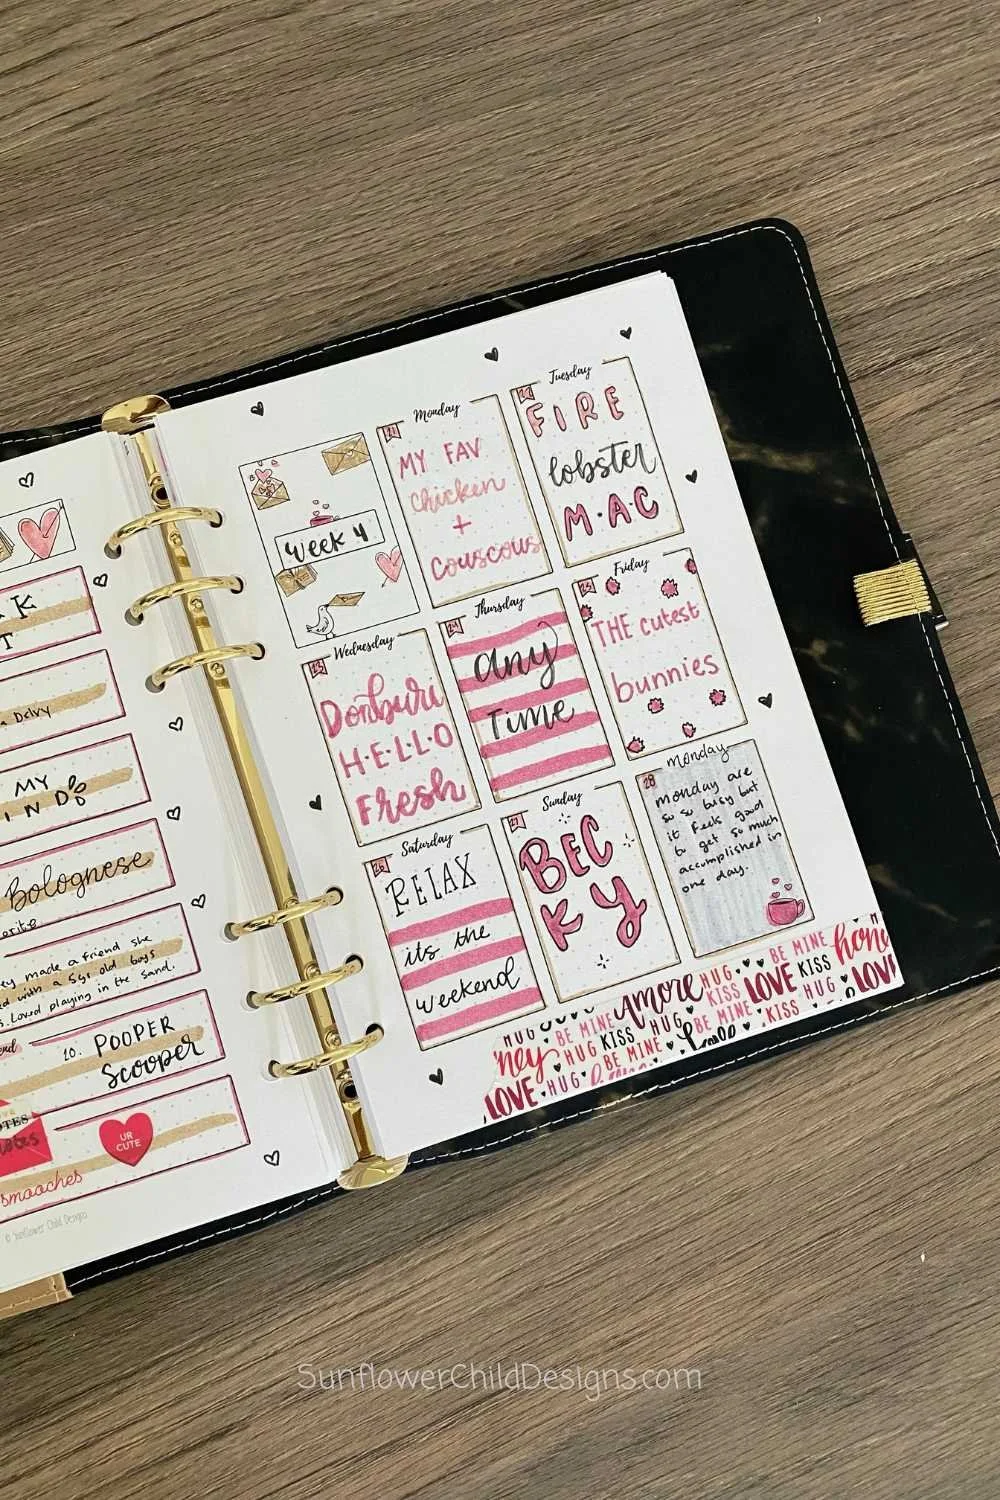 K
T
Delvy
MY
IND
Bolognese
orite
ey made a friend she
ed with a 5yr old boys
s. Loved playing in the sand.
end
10. POOPER
Scooper
UR
CUTE
smooches
© Sunflower Child Designs
Week 4
Monday
21
MY FAV
chicken
+
couscous
Tuesday
FIRE
lobster
M.A.C
Wednesday
23
Donburi
H·E·L·L·O
Fresh
Thursday
24
any
Time
Friday
25
THE cutest
bunnies
Saturday
26
RELAX
its the
weekend
Sunday
27
BEC
KY
monday
28
monday are
so so busy but
it feels good
to get so much
accomplished in
one day.
HUG BE MINE amore HUG KISS LOVE BE MINE KISS hone
HUG KISS HUG BE MINE KISS HUG LOVE
ney HUG BE MINE KISS
LOVE HUG
SunflowerChildDesigns.com